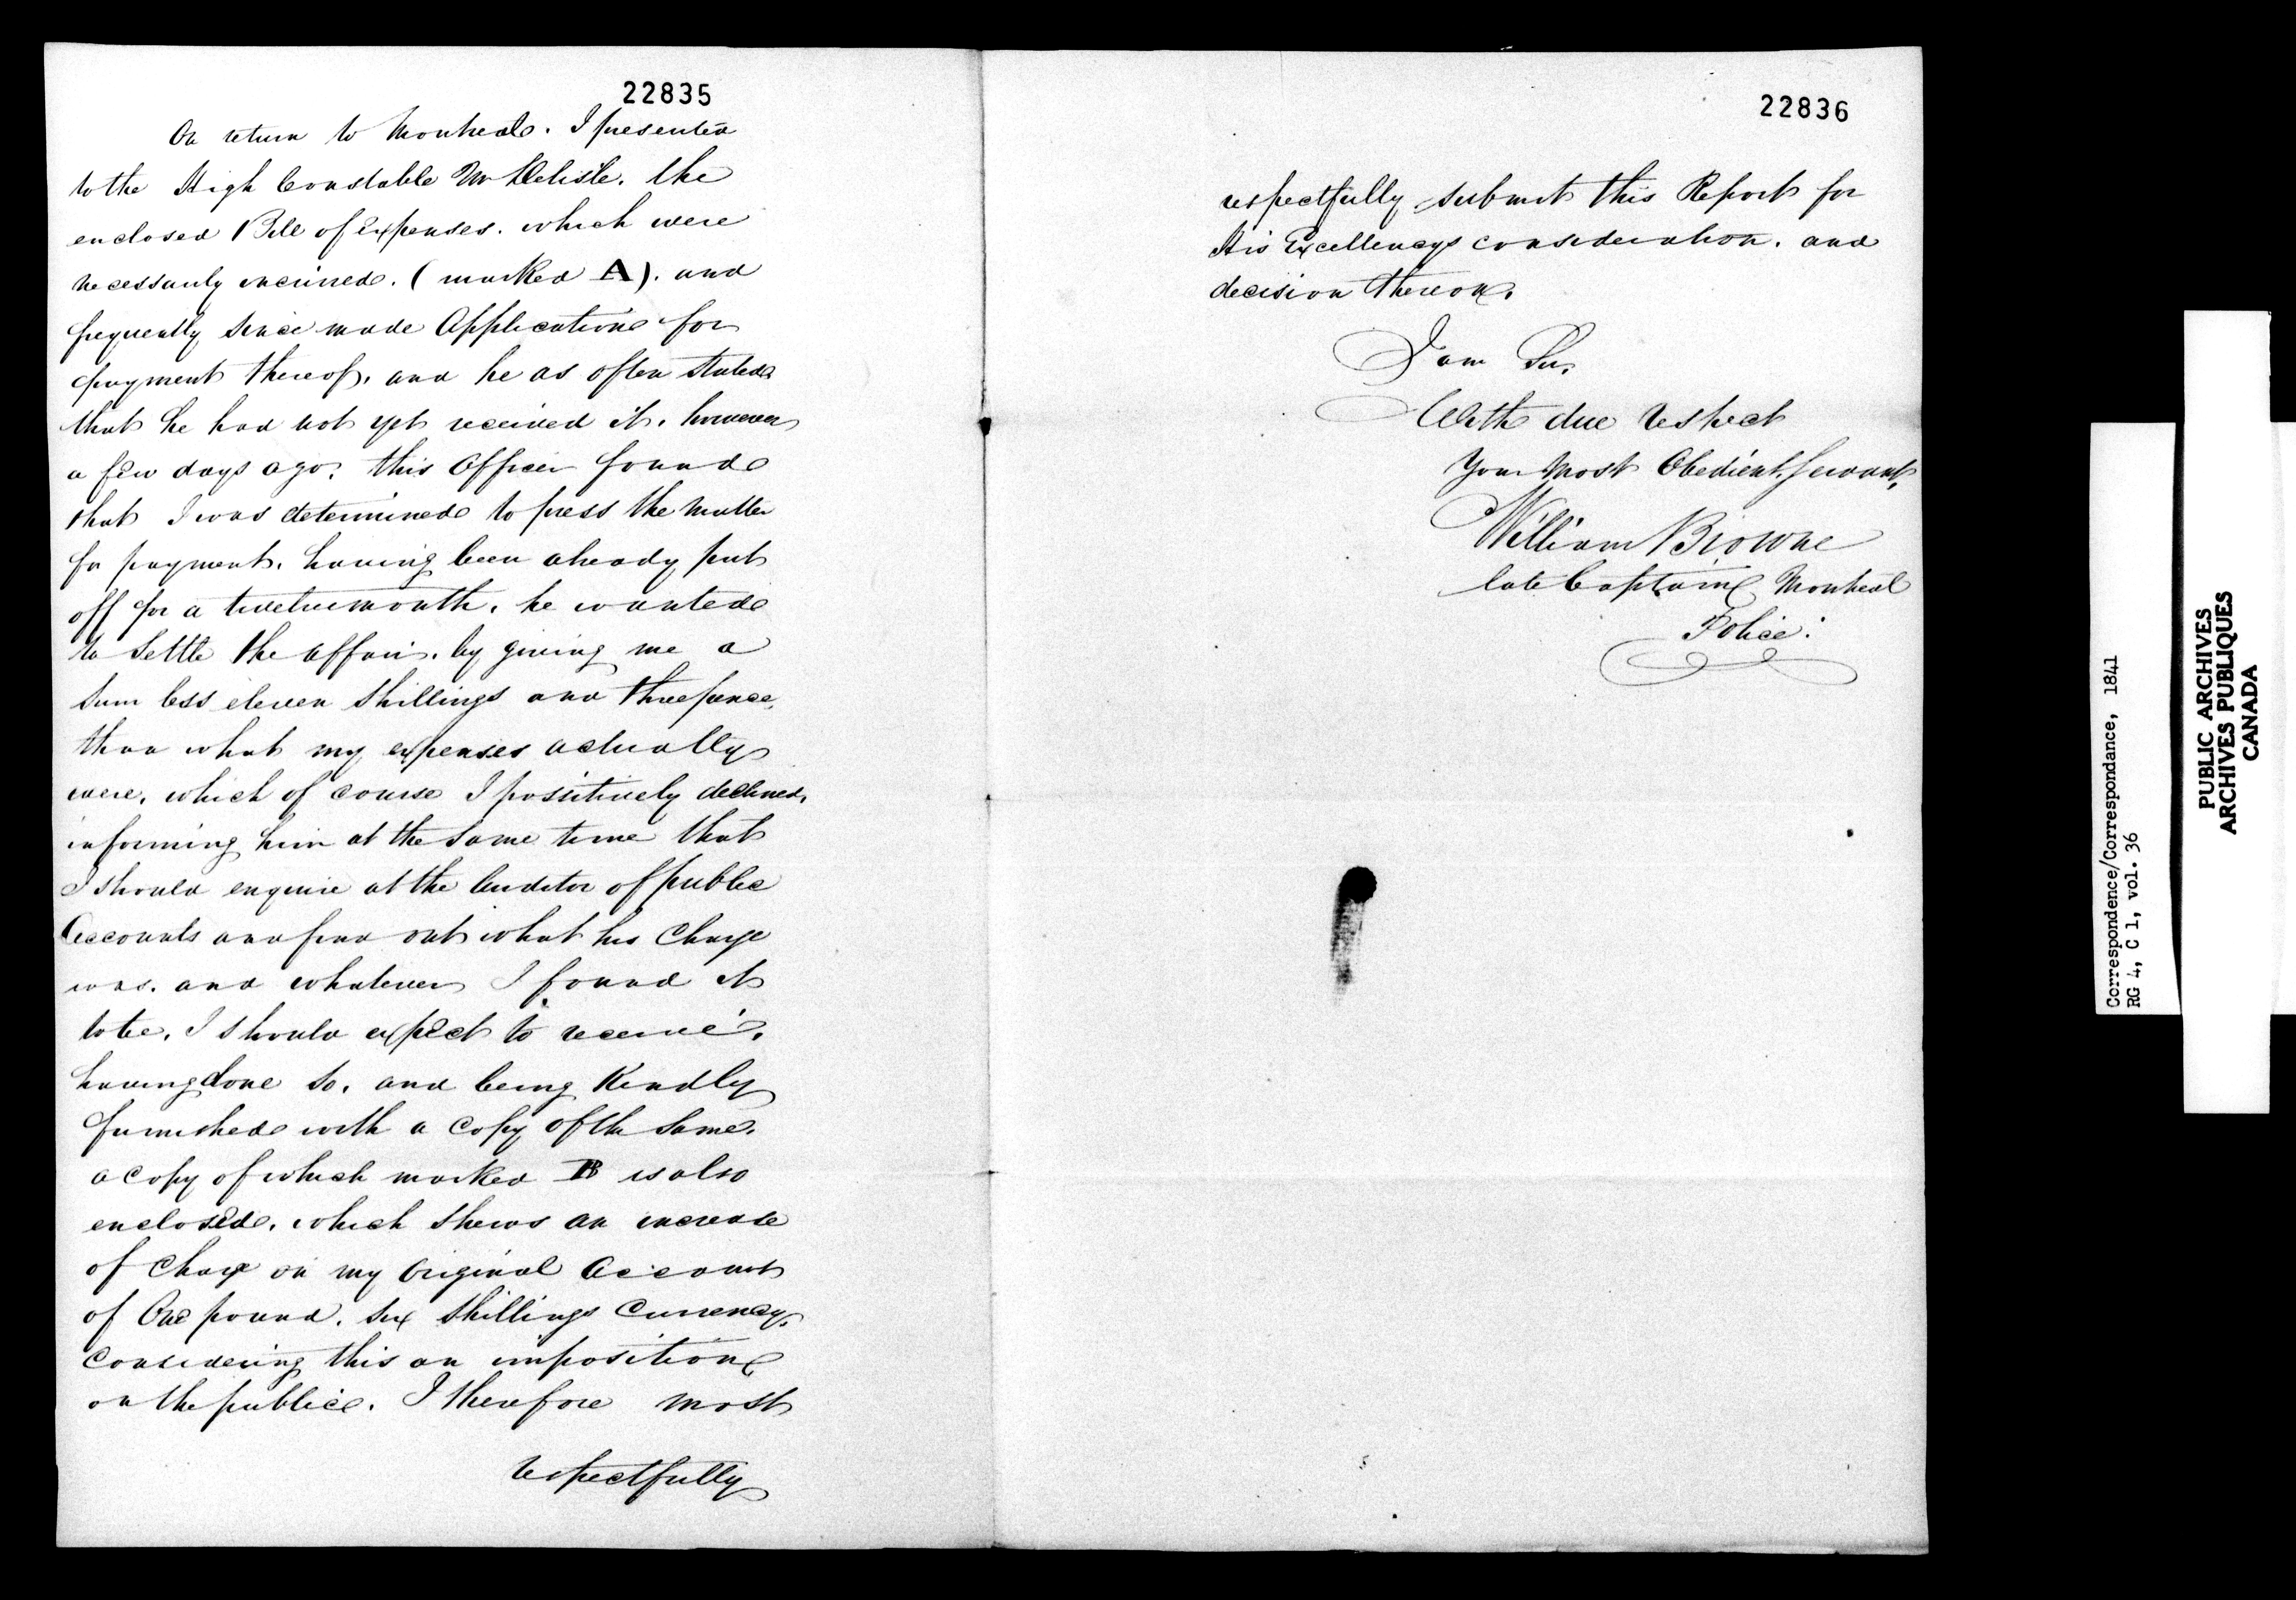 22835
On return to Montreal. I presented
to the High Constable Mr Delisle. the
enclosed Bill of Expenses. which were
necessarily incurred. (marked A). and
frequently since made Applications for
payment thereof. and he as often stated
that he had not yet received it. however
a few days ago. this Officer found
that I was determined to press the matter
for payment. having been already put
off for a twelvemonth. he wanted
to settle the affair. by giving me a
sum less eleven shillings and threepence,
than what my expenses actually
were, which of course I positively declined,
informing him at the same time that
I should enquire at the Auditor of public
Accounts and find out what his Charge
was. and whatever I found it
to be. I should expect to receive.
having done so. and being Kindly
furnished with a Copy of the same.
a Copy of which marked B is also
enclosed. which shews an increase
of Charge on my Original Account
of One pound. six shillings Currency.
Considering this an imposition
on the public. I therefore most
respectfully
22836
respectfully submit this Report for
His Excellencys consideration. and
decision thereon.
I am Sir,
With due respect
Your Most Obedient Servant,
William Browne
late Captain Montreal
Police.
Correspondence/Correspondance, 1841
RG 4, C 1, vol. 36
PUBLIC ARCHIVES
ARCHIVES PUBLIQUES
CANADA